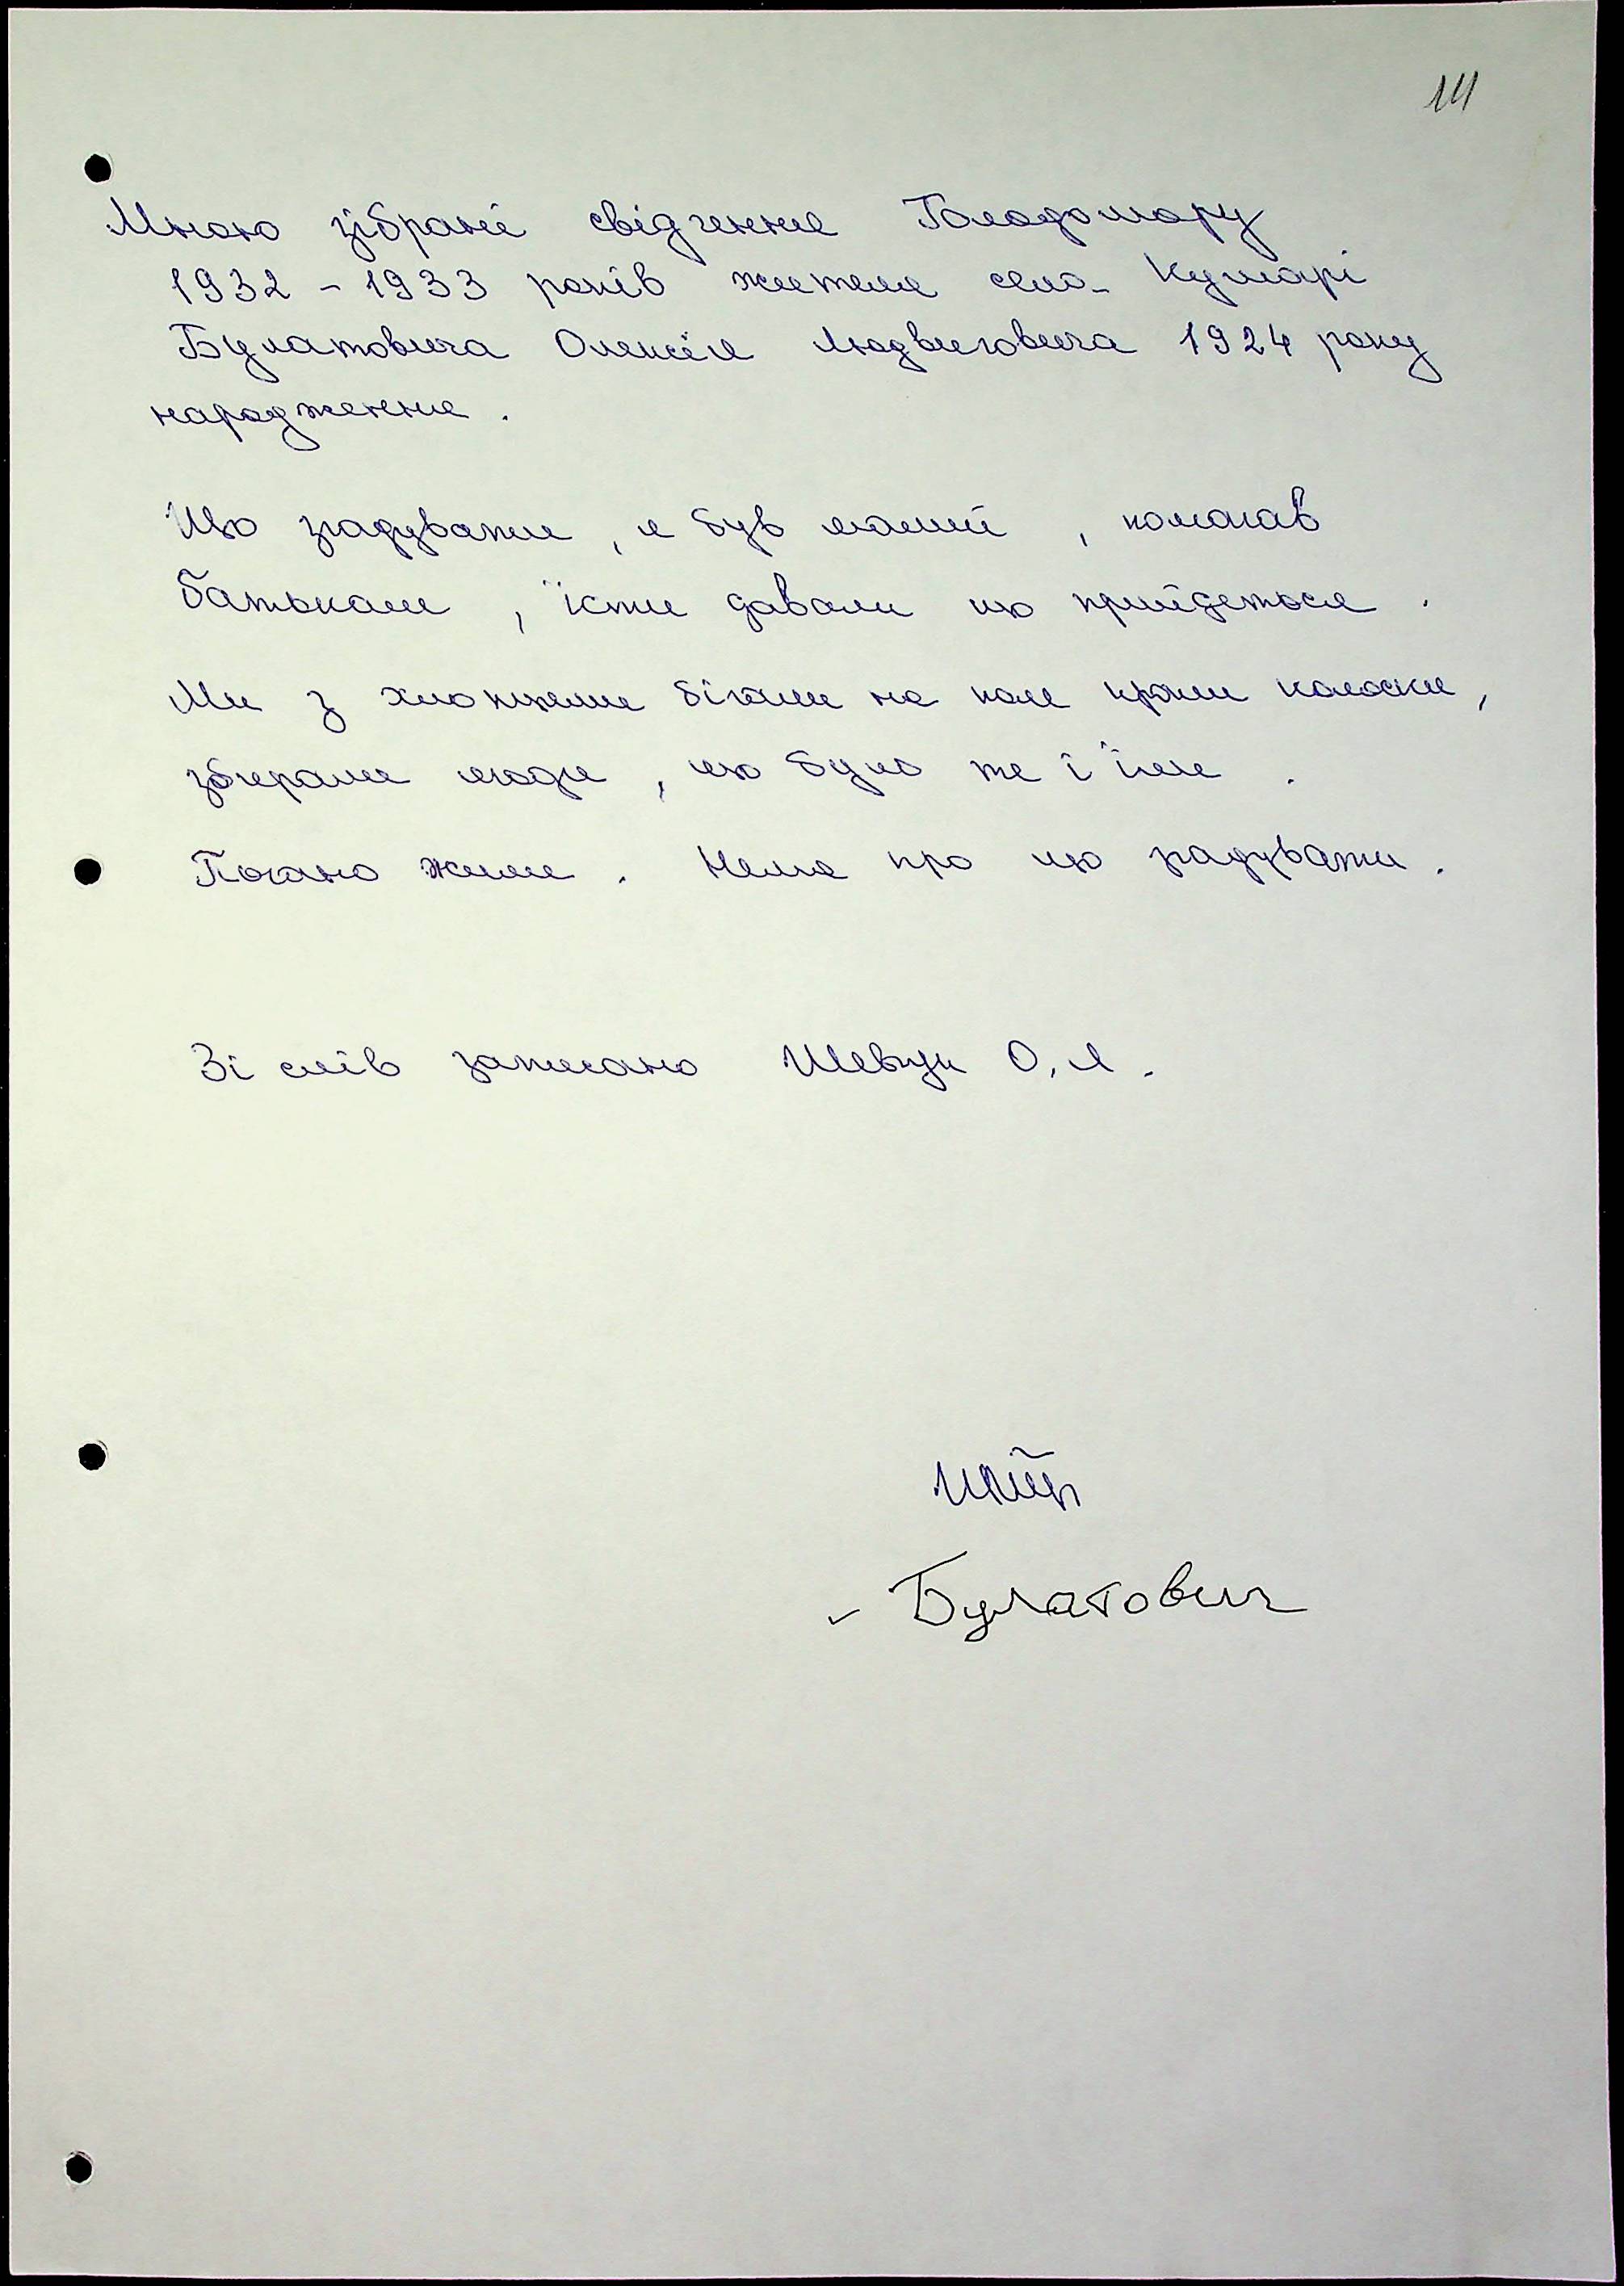 14
Мною зібрані свідчення Голодомору
1932 - 1933 років жителя села Кумарі
Булатовича Олексія Людвиговича 1924 року
народження.
Що згадувати, я був малий, помагав
батькам, їсти давали що прийдеться.
Ми з хлопцями бігали на поле крали колоски,
збирали ягоди, що було те і їли.
Погано жили. Нема про що згадувати.
Зі слів записано Шевчук О. Я.
Булатович